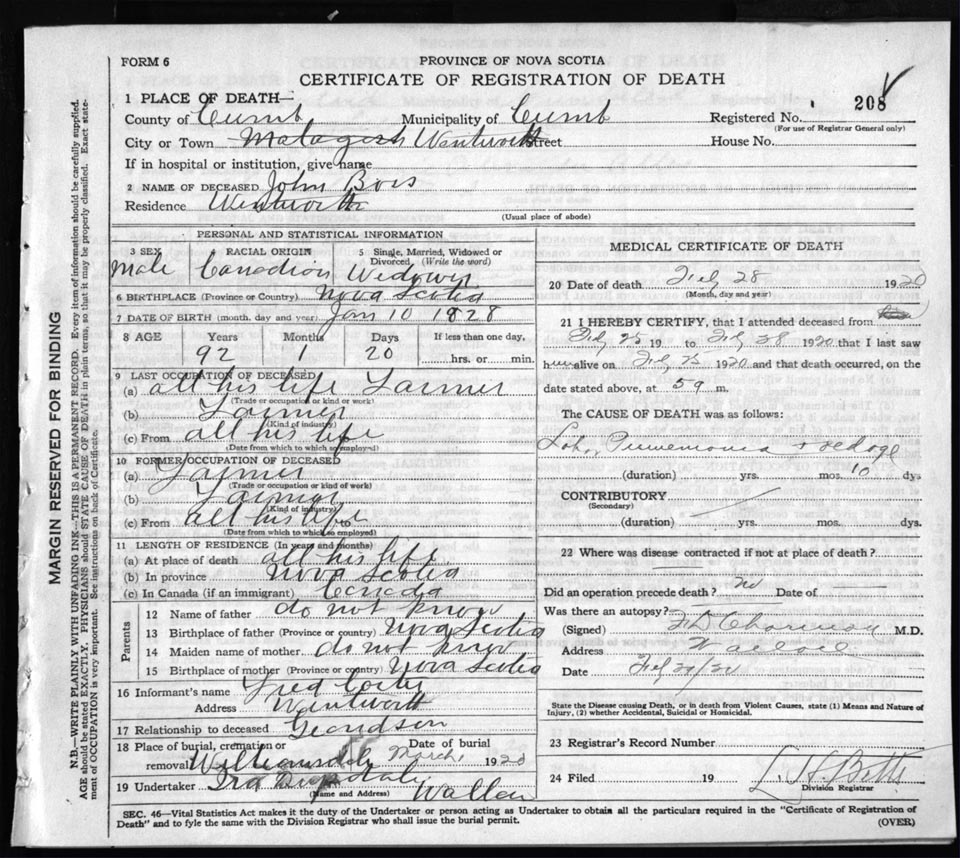 FORM 6
PROVINCE OF NOVA SCOTIA
CERTIFICATE OF REGISTRATION OF DEATH
208
1 PLACE OF DEATH—
County of Cumb Municipality of Cumb Registered No.
(For use of Registrar General only)
City or Town Malagash Wentworth Street House No.
If in hospital or institution, give name
2 NAME OF DECEASED John Bois
Residence Wentworth
(Usual place of abode)
PERSONAL AND STATISTICAL INFORMATION
3 SEX RACIAL ORIGIN 5 Single, Married, Widowed or Divorced (Write the word)
Male Canadian Widower
6 BIRTHPLACE (Province or Country) Nova Scotia
7 DATE OF BIRTH (month, day and year) Jan 10 1828
8 AGE Years Months Days If less than one day,
92 1 20 hrs. or min.
9 LAST OCCUPATION OF DECEASED
(a) all his life Farmer
(Trade or occupation or kind or work)
(b) Farmer
(Kind of industry)
(c) From all his life
(Date from which to which so employed)
10 FORMER OCCUPATION OF DECEASED
(a) Farmer
(Trade or occupation or kind of work)
(b) Farmer
(Kind of industry)
(c) From all his life to
(Date from which to which so employed)
11 LENGTH OF RESIDENCE (In years and months)
(a) At place of death all his life
(b) In province Nova Scotia
(c) In Canada (if an immigrant) Canada
Parents
12 Name of father do not know
13 Birthplace of father (Province or country) Nova Scotia
14 Maiden name of mother do not know
15 Birthplace of mother (Province or country) Nova Scotia
16 Informant's name Fred
Address Wentworth
17 Relationship to deceased Grandson
18 Place of burial, cremation or removal Williamsdale Date of burial March 1920
19 Undertaker Ira Wallace
(Name and Address)
MEDICAL CERTIFICATE OF DEATH
20 Date of death Feb 28 1920
(Month, day and year)
21 I HEREBY CERTIFY, that I attended deceased from
Feb 25 19 to Feb 28 1920 that I last saw
him alive on Feb 25 1920 and that death occurred, on the
date stated above, at 5 9 m.
The CAUSE OF DEATH was as follows:
Lobar Pneumonia + old age
(duration) yrs. mos. 10 dys.
CONTRIBUTORY
(Secondary)
(duration) yrs. mos. dys.
22 Where was disease contracted if not at place of death?
Did an operation precede death? no Date of
Was there an autopsy?
(Signed) M.D.
Address Wallace
Date
State the Disease causing Death, or in death from Violent Causes, state (1) Means and Nature of
Injury, (2) whether Accidental, Suicidal or Homicidal.
23 Registrar's Record Number
24 Filed 19 L. H. Betts
Division Registrar
SEC. 46—Vital Statistics Act makes it the duty of the Undertaker or person acting as Undertaker to obtain all the particulars required in the "Certificate of Registration of
Death" and to fyle the same with the Division Registrar who shall issue the burial permit. (OVER)
MARGIN RESERVED FOR BINDING
N.B.—WRITE PLAINLY WITH UNFADING INK—THIS IS A PERMANENT RECORD. Every item of information should be carefully supplied.
AGE should be stated EXACTLY. PHYSICIANS should STATE CAUSE OF DEATH in plain terms, so that it may be properly classified. Exact state-
ment of OCCUPATION is very important. See instructions on back of Certificate.